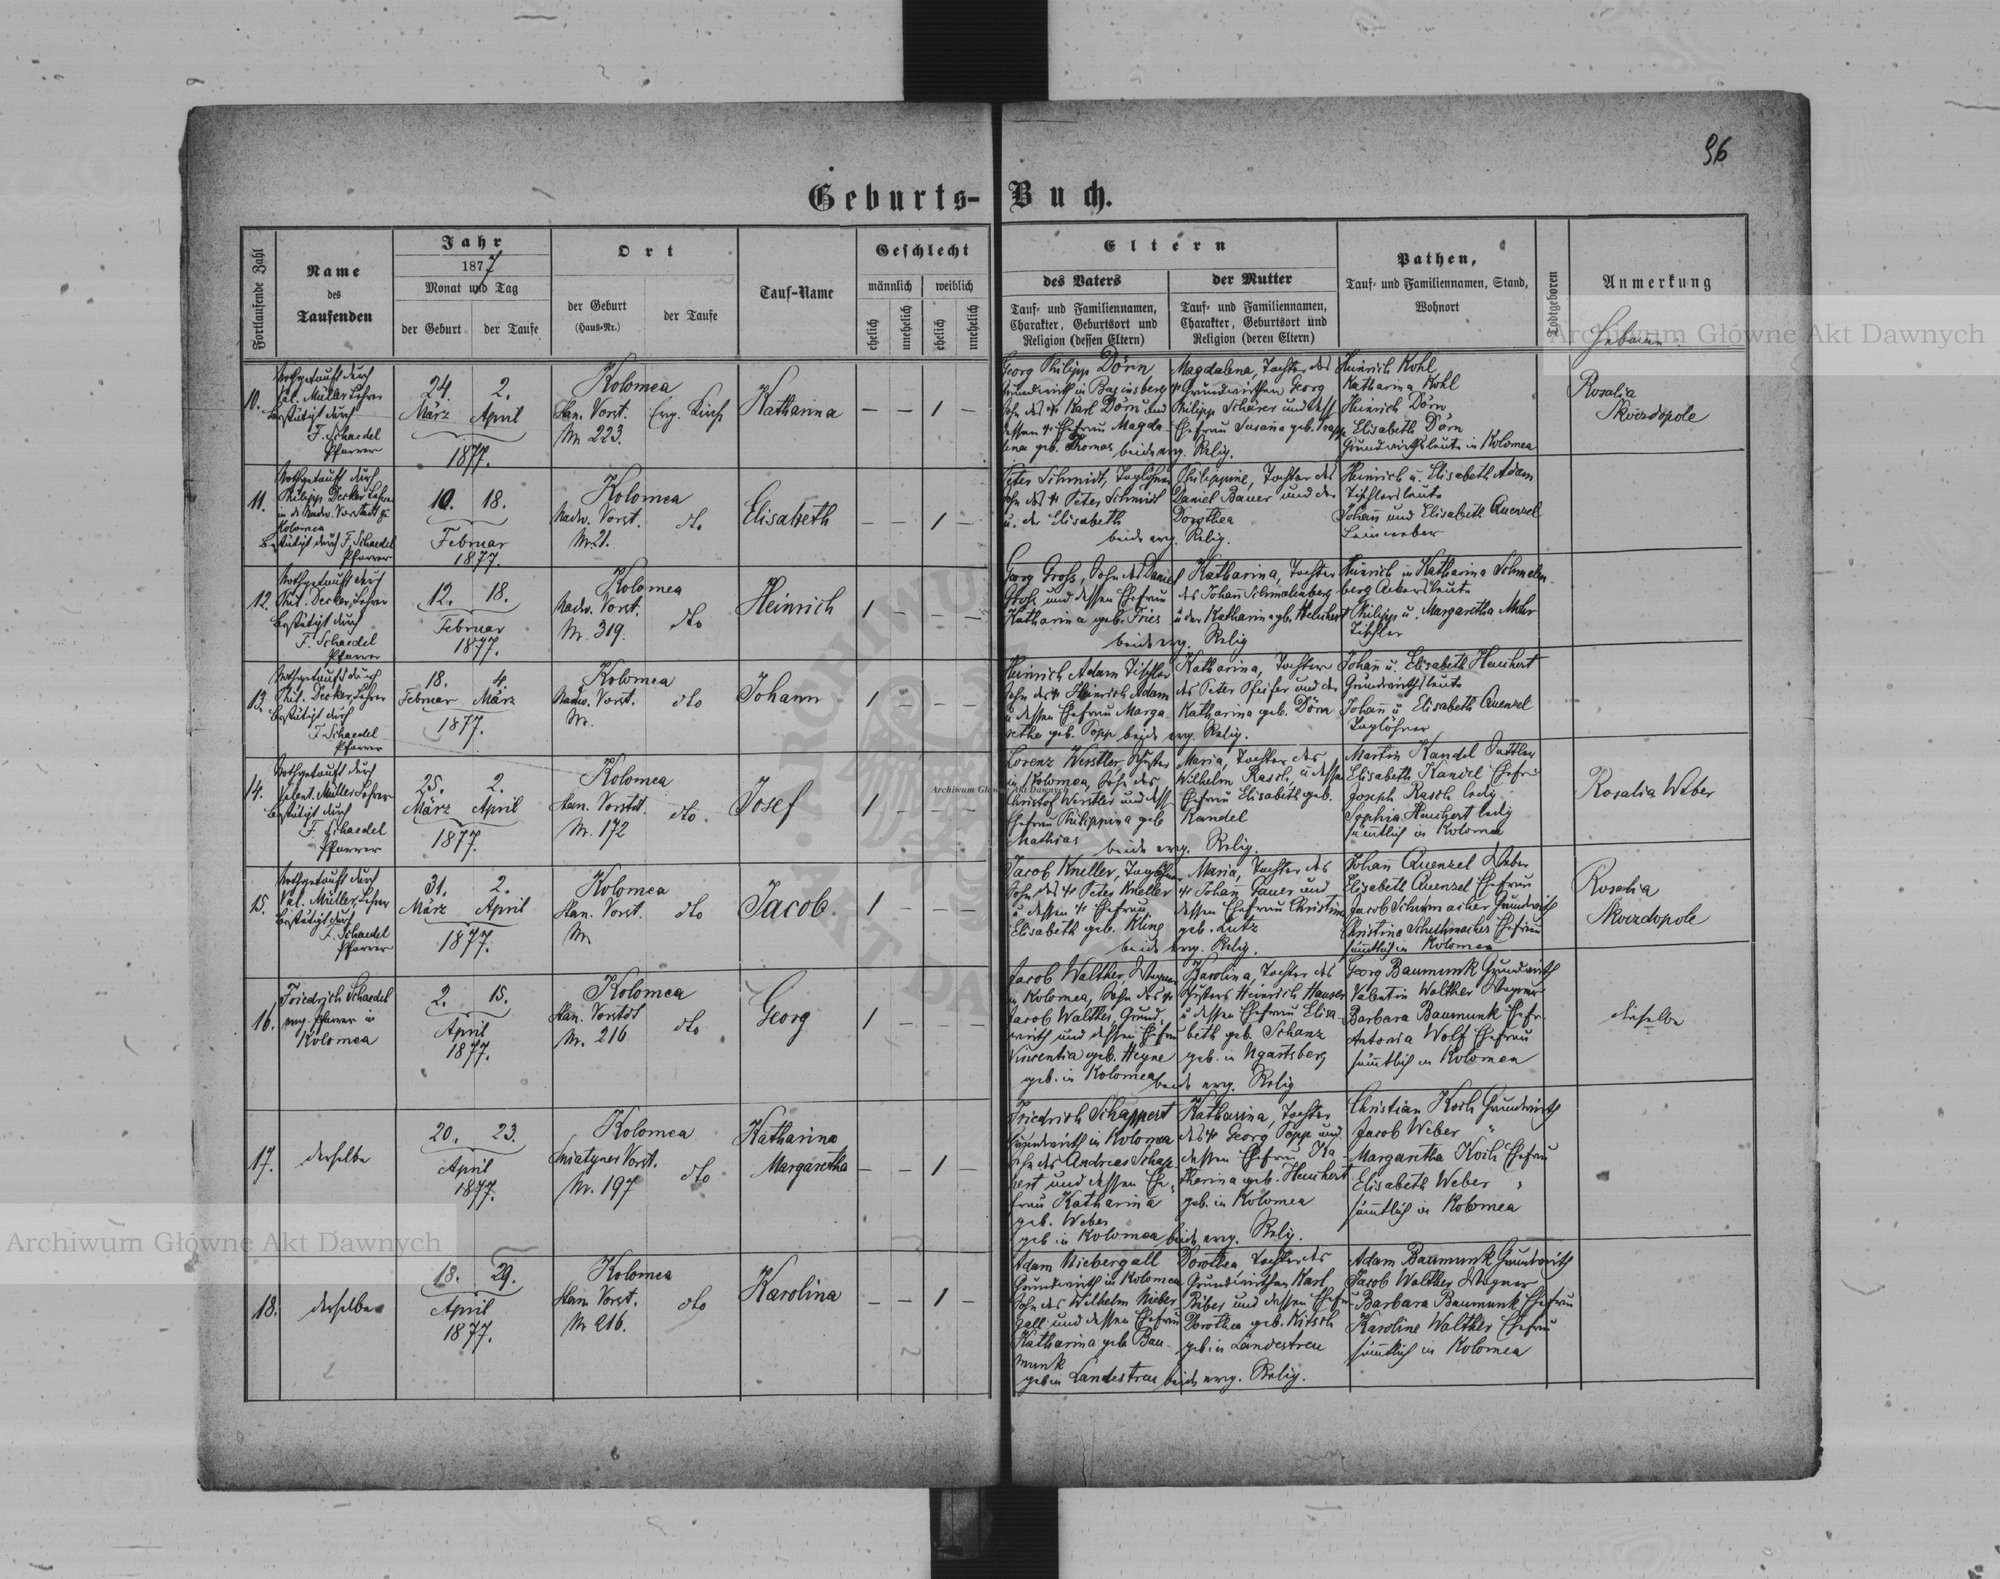 96
Geburts-Buch.
Fortlaufende Zahl
Name
des
Taufenden
Jahr
1877
Monat und Tag
der Geburt
der Taufe
Ort
der Geburt
(Haus-Nr.)
der Taufe
Tauf-Name
Geschlecht
männlich
weiblich
ehelich
unehelich
ehelich
unehelich
Eltern
des Vaters
Tauf- und Familiennamen,
Charakter, Geburtsort und
Religion (dessen Eltern)
der Mutter
Tauf- und Familiennamen,
Charakter, Geburtsort und
Religion (deren Eltern)
Pathen,
Tauf- und Familiennamen, Stand,
Wohnort
Todtgeboren
Anmerkung
Hebamme
10.
Nothgetauft durch
Val. Müller Lehrer
bestätigt durch
F. Schaedel
Pfarrer
24. 2.
März April
1877.
Kolomea
Stan. Vorst.
Nr. 223.
Evg. Kirche
Katharina
— — 1 —
Georg Philipp Dörn
Grundwirth in
Sohn des Karl Dörn und
dessen Ehefrau Magda-
lena geb. Thomas
Magdalena, Tochter des
Grundwirthen Georg
Philipp Schärer und dess
Ehefrau Susana geb.
beide evg. Relig.
Heinrich Kohl
Katharina Kohl
Heinrich Dörn
Elisabeth Dörn
Grundwirthsleute in Kolomea
Rosalia
Skvezdopole
11.
Nothgetauft durch
Philipp Decker Lehrer
in der Nadw. Vorstadt zu
Kolomea
bestätigt durch F. Schaedel
Pfarrer
10. 18.
Februar
1877.
Kolomea
Nadw. Vorst.
Nr. 21.
dto
Elisabeth
— — 1 —
Peter Schmidt, Taglöhner
Sohn des Peter Schmidt
u. der Elisabeth
Philippine, Tochter des
Daniel Bauer und der
Dorothea
beide evg. Relig.
Heinrich u. Elisabeth Adam
Tischlersleute
Johann und Elisabeth Quenzel
Leinweber
12.
Nothgetauft durch
Phil. Decker, Lehrer
bestätigt durch
F. Schaedel
Pfarrer
12. 18.
Februar
1877.
Kolomea
Nadw. Vorst.
Nr. 319.
dto
Heinrich
1 — — —
Georg Groß, Sohn des Daniel
Groß und dessen Ehefrau
Katharina geb. Fries
Katharina, Tochter
des Johann Schmalenberg
u der Katharina geb. Heuchert
beide evg. Relig
Heinrich u Katharina Schmalen-
berg Ackersleute
Philipp u. Margaretha Mohr
Tischler
13.
Nothgetauft durch
Phil. Decker, Lehrer
bestätigt durch
F. Schaedel
Pfarrer
18. 4.
Februar März
1877.
Kolomea
Nadw. Vorst.
Nr.
dto
Johann
1 — — —
Heinrich Adam Tischler
Sohn des Heinrich Adam
u dessen Ehefrau Marga-
retha geb. Popp
Katharina, Tochter
des Peter Pfeifer und der
Katharina geb. Dörn
beide evg. Relig.
Johann u. Elisabeth Heuchert
Grundwirthsleute
Johann u Elisabeth Quenzel
Taglöhner
14.
Nothgetauft durch
Valent. Müller Lehrer
bestätigt durch
F. Schaedel
Pfarrer
25. 2.
März April
1877.
Kolomea
Stan. Vorstdt.
Nr. 172
dto.
Josef
1 — — —
Lorenz Werstler, Schuster
in Kolomea, Sohn des
Christof Werstler und dess
Ehefrau Philippina geb
Mathias
Maria, Tochter des
Wilhelm Rasch, u dessen
Ehefrau Elisabeth geb.
Kandel
beide evg. Relig.
Martin Kandel Sattler
Elisabeth Kandel Ehefr
Joseph Rasch ledig
Sophia Heuchert ledig
sämtlich in Kolomea
Rosalia Weber
15.
Nothgetauft durch
Val. Müller Lehrer
bestätigt durch
F. Schaedel
Pfarrer
31. 2.
März April
1877.
Kolomea
Stan. Vorst.
Nr
dto
Jacob
1 — — —
Jacob Kneller, Taglöhner
Sohn des Peter Kneller
u dessen Ehefrau
Elisabeth geb. Kling
Maria, Tochter des
Johann Gauer und
dessen Ehefrau Christina
geb. Lutz
beide evg. Relig.
Johann Quenzel Weber
Elisabeth Quenzel Ehefrau
Jacob Schumacher Grundwirth
Christina Schuhmacher Ehefrau
sämtlich in Kolomea
Rosalia
Skvezdopole
16.
Friedrich Schaedel
evg. Pfarrer in
Kolomea
2. 15.
April
1877.
Kolomea
Stan. Vorstdt
Nr. 216
dto
Georg
1 — — —
Jacob Walther, Wagner
in Kolomea, Sohn des
Jacob Walther, Grund-
wirth und dessen Ehefrau
Vincentia geb. Heyne
geb. in Kolomea
Karolina, Tochter des
Schusters Heinrich Hauser
u dessen Ehefrau Elisa-
beth geb. Schanz
geb. in Ugartsberg
beide evg. Relig
Georg Baumunk Grundwirth
Valentin Walther Wagner
Barbara Baumunk Ehefr.
Antonia Wolf Ehefrau
sämtlich in Kolomea
dieselbe
17.
derselbe
20. 23.
April
1877.
Kolomea
Sniatyner Vorst.
Nr. 197
dto
Katharina
Margaretha
— — 1 —
Friedrich Schappert
Grundwirth in Kolomea
Sohn des Andreas Schap-
pert und dessen Ehe-
frau Katharina
geb. Weber
geb in Kolomea
Katharina, Tochter
des Georg Popp und
dessen Ehefrau Ka-
tharina geb. Heuchert
geb. in Kolomea
beide evg. Relig.
Christian Koch Grundwirth
Jacob Weber "
Margaretha Koch Ehefrau
Elisabeth Weber "
sämtlich in Kolomea
18.
derselbe
18. 29.
April
1877.
Kolomea
Stan. Vorst.
Nr 216.
dto
Karolina
— — 1 —
Adam Niebergall
Grundwirth in Kolomea
Sohn des Wilhelm Nieber-
gall und dessen Ehefrau
Katharina geb Bau-
munk
geb in Landestreu
Dorothea Tochter des
Grundwirthen Karl
Biber und dessen Ehefr
Dorothea geb. Kirsch
geb. in Landestreu
beide evg. Relig.
Adam Baumunk Grundwirth
Jacob Walther Wagner
Barbara Baumunk Ehefrau
Karoline Walther Ehefrau
sämtlich in Kolomea
Archiwum Główne Akt Dawnych
Archiwum Główne Akt Dawnych
Archiwum Główne Akt Dawnych